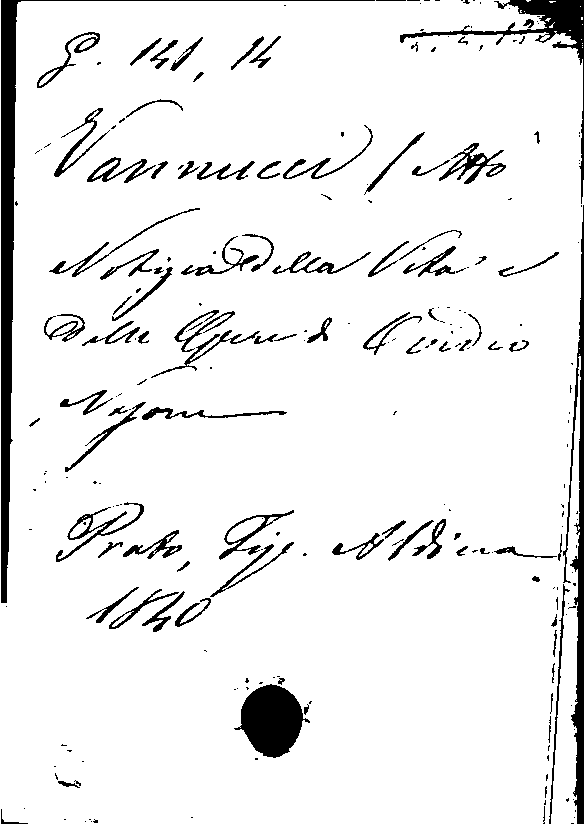 G. 141, 14
Vannucci / Atto
Notizia della Vita e
delle Opere di Ovidio
Nasone
Prato, Tip. Aldina
1840